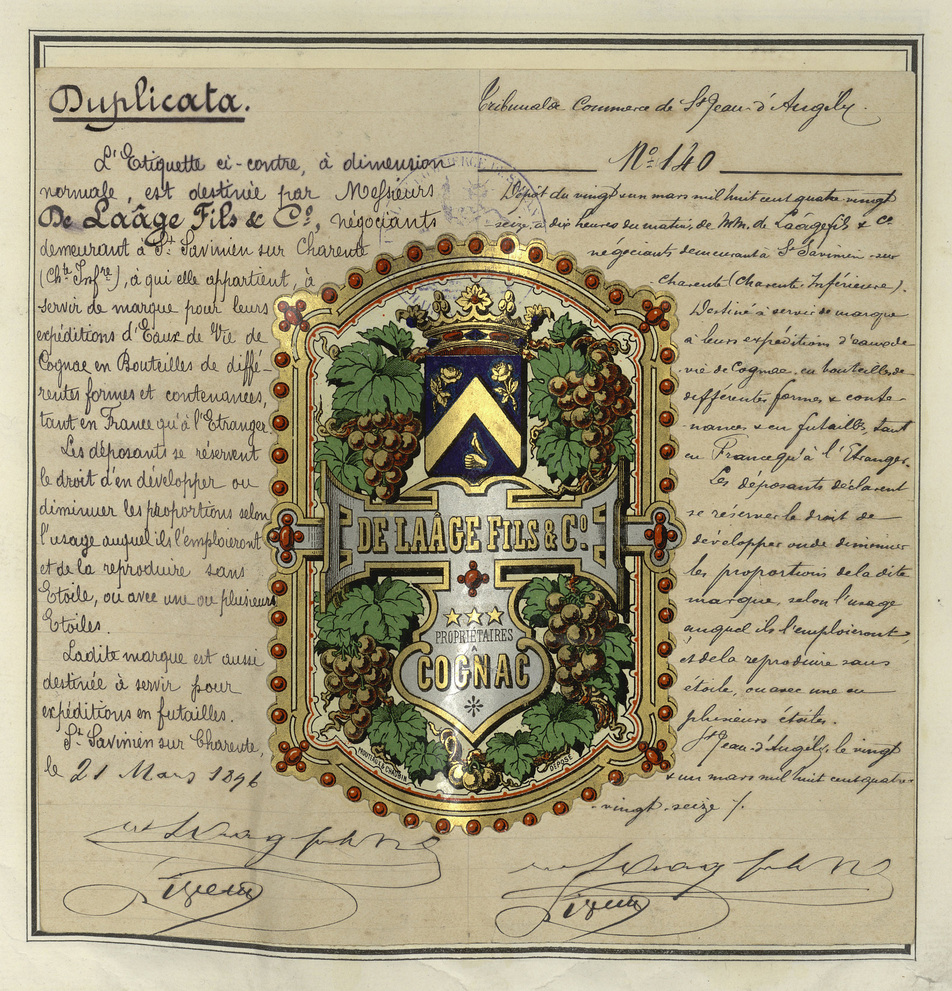 Duplicata.
L'Etiquette ci-contre, à dimension
normale, est destinée par Messieurs
De Laâge Fils & Cº, négociants
demeurant à St Savinien sur Charente
(Chte Infre), à qui elle appartient, à
servir de marque pour leurs
expéditions d'Eaux de Vie de
Cognac en Bouteilles de diffé-
rentes formes et contenances,
tant en France qu'à l'Etranger.
Les déposants se réservent
le droit d'en développer ou
diminuer les proportions selon
l'usage auquel ils l'emploieront
et de la reproduire sans
Etoile, ou avec une ou plusieurs
Etoiles.
Ladite marque est aussi
destinée à servir pour
expéditions en futailles.
St Savinien sur Charente,
le 21 Mars 1896
Tribunal de Commerce de St Jean-d'Angély.
Nº 140
Dépôt du vingt un mars mil huit cent quatre vingt
seize, à dix heures du matin, de MM. de Laâge fils & Cº
négociants demeurant à St Savinien-sur
Charente (Charente-Inférieure).
Destiné à servir de marque
à leurs expéditions d'eaux-de
vie de Cognac, en bouteilles de
différentes formes & conte-
nances & en futailles, tant
en France qu'à l'Etranger.
Les déposants déclarent
se réserver le droit de
développer ou de diminuer
les proportions de la dite
marque, selon l'usage
auquel ils l'emploieront,
et de la reproduire sans
étoile, ou avec une ou
plusieurs étoiles.
St Jean-d'Angély, le vingt
& un mars mil huit cent quatre-
vingt-seize /.
DE LAÂGE FILS & Cº
PROPRIÉTAIRES
À
COGNAC
DÉPOSÉ